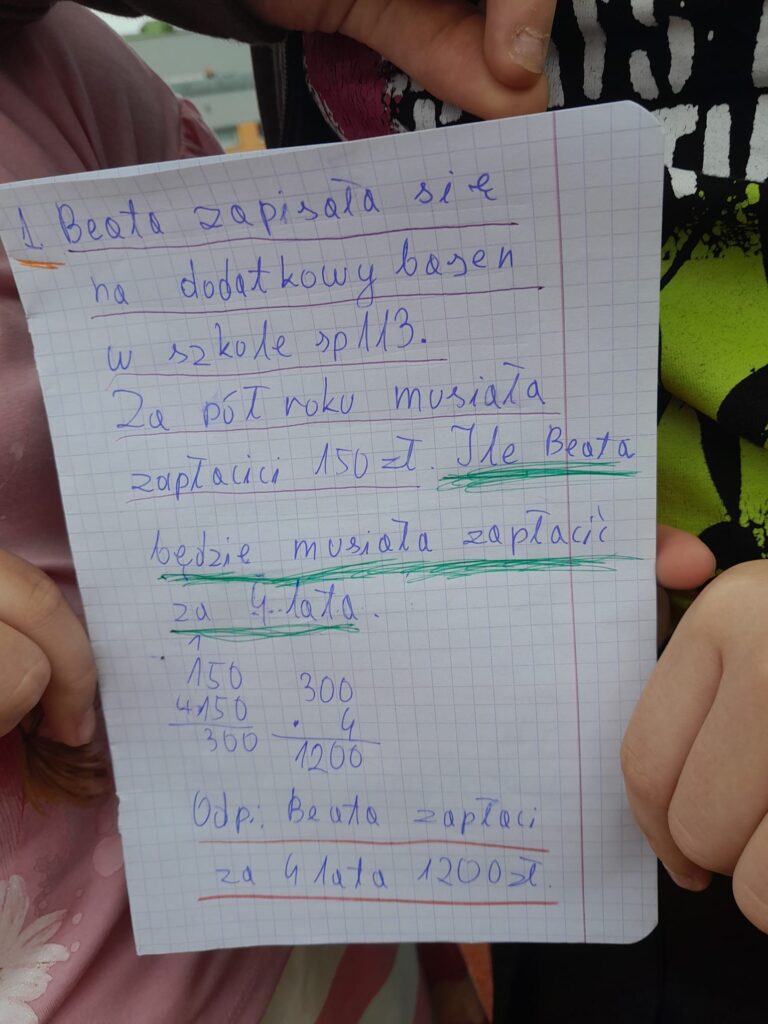 1. Beata zapisała się
na dodatkowy basen
w szkole sp113.
Za pół roku musiała
zapłacici 150 zł. Ile Beata
będzie musiała zapłacić
za 4 lata.
1
150 300
+150 · 4
300 1200
Odp: Beata zapłaci
za 4 lata 1200 zł.